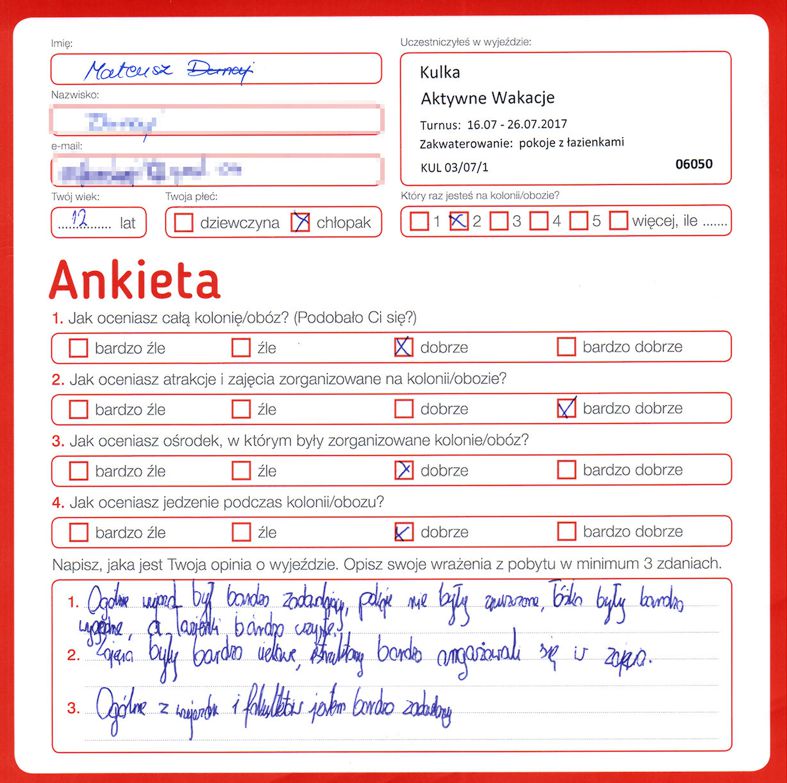 Imię:
Mateusz
Nazwisko:
e-mail:
Twój wiek:
12 lat
Twoja płeć:
dziewczyna chłopak
Uczestniczyłeś w wyjeździe:
Kulka
Aktywne Wakacje
Turnus: 16.07 - 26.07.2017
Zakwaterowanie: pokoje z łazienkami
KUL 03/07/1 06050
Który raz jesteś na kolonii/obozie?
1 2 3 4 5 więcej, ile .......
Ankieta
1. Jak oceniasz całą kolonię/obóz? (Podobało Ci się?)
bardzo źle źle dobrze bardzo dobrze
2. Jak oceniasz atrakcje i zajęcia zorganizowane na kolonii/obozie?
bardzo źle źle dobrze bardzo dobrze
3. Jak oceniasz ośrodek, w którym były zorganizowane kolonie/obóz?
bardzo źle źle dobrze bardzo dobrze
4. Jak oceniasz jedzenie podczas kolonii/obozu?
bardzo źle źle dobrze bardzo dobrze
Napisz, jaka jest Twoja opinia o wyjeździe. Opisz swoje wrażenia z pobytu w minimum 3 zdaniach.
1. Ogólnie wyjazd był bardzo zadowalający, pokoje nie były zniszczone, łóżka były bardzo
wygodne, a łazienki bardzo czyste.
2. Zajęcia były bardzo ciekawe, bardzo angażowali się w zajęcia.
3. Ogólnie z wyjazdu i jestem bardzo zadowolony